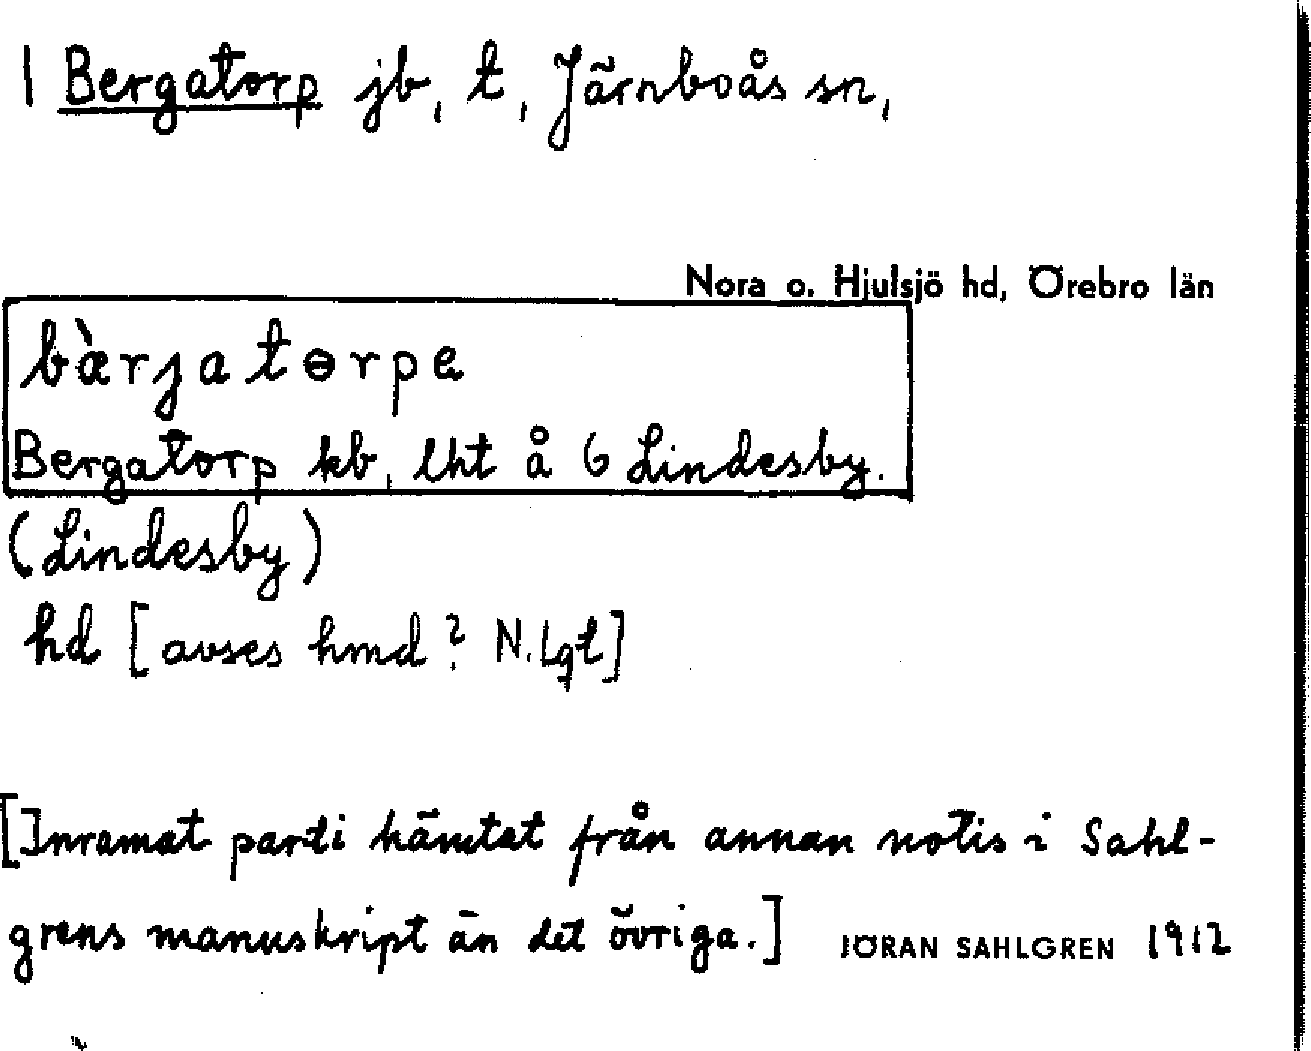 | Bergatorp jb, t, Järnboås sn,
Nora o. Hjulsjö hd, Örebro län
bærjatɵrpa
Bergatorp kb, lht å 6 Lindesby.
(Lindesby)
hd [avses hmd? N. Lgt]
[Inramat parti hämtat från annan notis i Sahl-
grens manuskript än det övriga.] JÖRAN SAHLGREN 1912